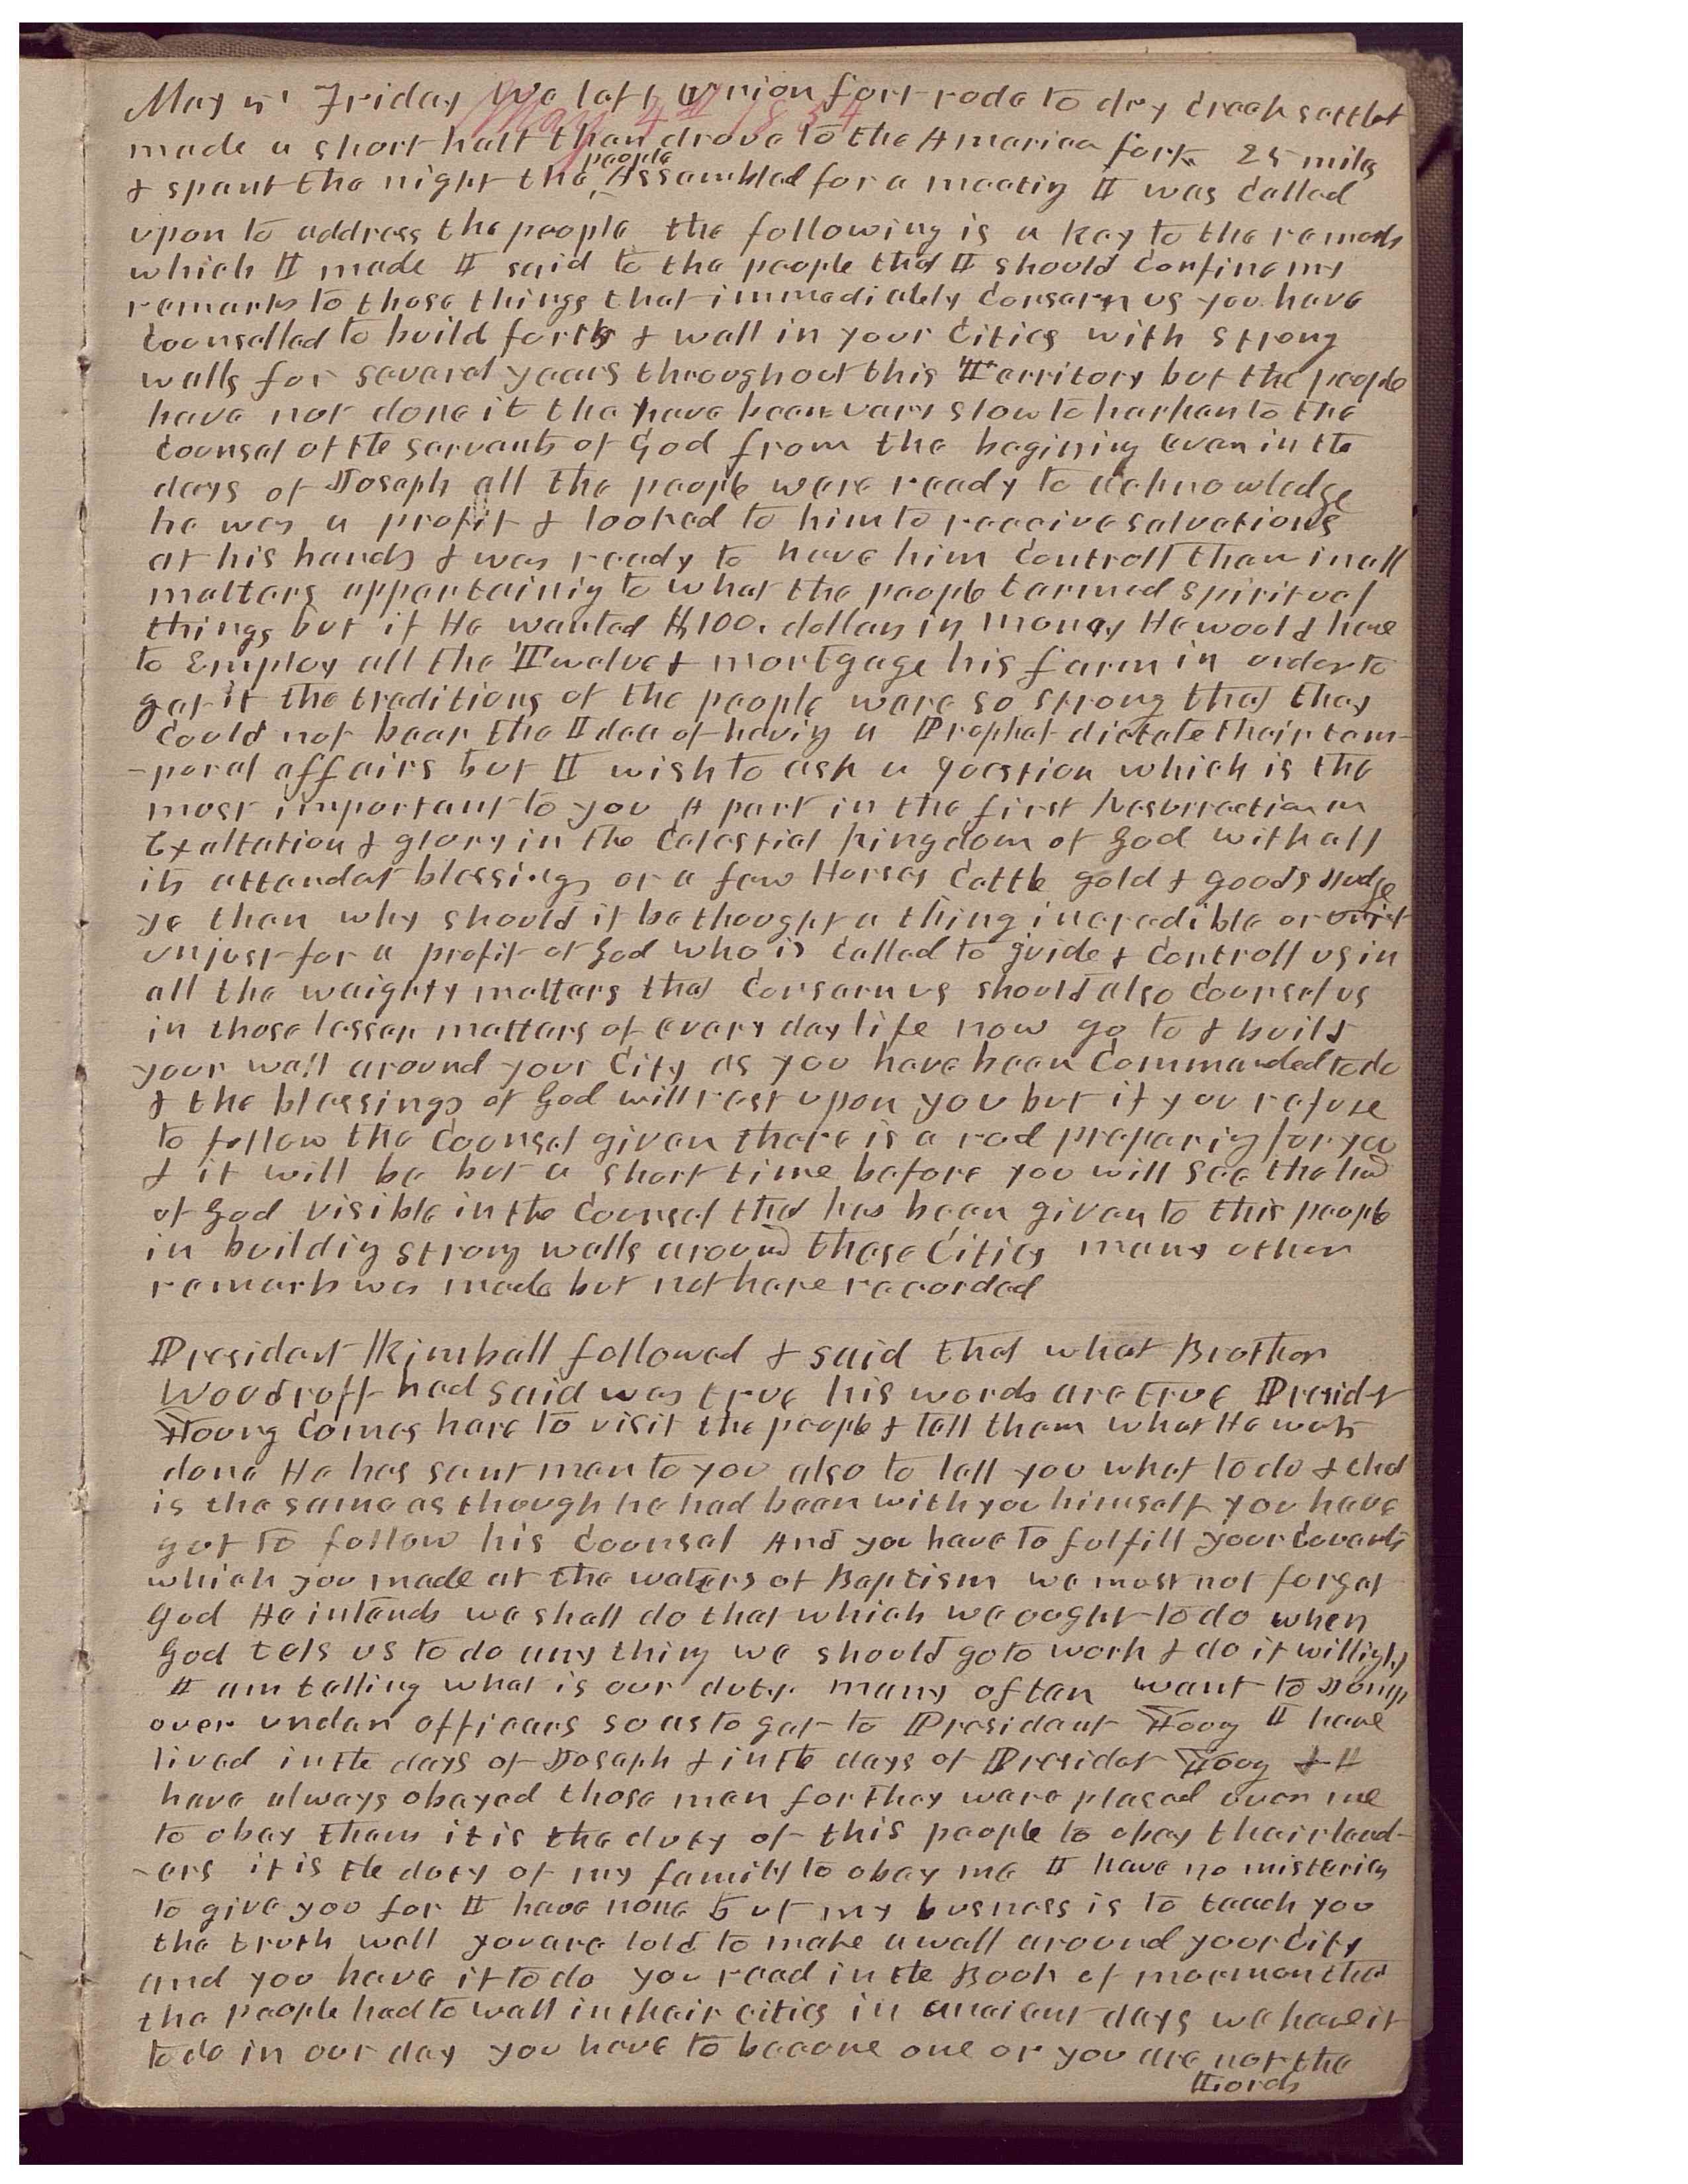 May 5t Friday We left union fort rode to dry Creek settlet
May 4th 1854
made a short halt then drove to the America fork 25 miles
& spent the night the people Assembled for a meetig I was Called
upon to address the people the following is a Key to the remarks
which I made I said to the people that I should Confine my
remarks to those things that immediately Consern us you have
Counselled to build forts & wall in your Cities with strong
walls for several years throughout this Territory but the people
have not done it the have been very slow to harken to the
Counsel of the servants of God from the begining even in the
days of Joseph all the people were ready to acknowledge
he was a profit & looked to him to receive salvations
at his hands & was ready to have him Controll them in all
matters appertainig to what the people termed spiritual
things but if He wanted $100. dollars in money He would have
to Employ all the Twelve & mortgage his farm in order to
get it the traditions of the people were so strong that they
Could not bear the Idea of havig a Prophet dictate their tem-
-poral affairs but I wish to ask a question which is the
most important to you A part in the first Resurrection an
Exaltation & glory in the Celestial kingdom of God with all
its attendat blessings or a few Horses Cattle gold & goods Judge
ye then why should it be thought a thing incredible or
unjust for a profit of God who is Called to guide & Controll us in
all the weighty matters that Consern us should also Counsel us
in those lesser matters of every day life now go to & build
your wall around your City as you have been Commanded to do
& the blessings of God will rest upon you but if you refuse
to follow the Counsel given there is a rod preparig for you
& it will be but a short time before you will see the hand
of God visible in the Counsel that has been given to this people
in buildig strong walls around these Cities many other
remarks was made but not here recorded
President Kimball followed & said that what Brother
Woodruff had said was true his words are true Presidt
Young Comes here to visit the people & tell them what He wants
done He has sent men to you also to tell you what to do & that
is the same as though he had been with you himself you have
got to follow his Counsel And you have to fulfill your Covants
which you made at the waters of Baptism we must not forget
God He intends we shall do that which we ought to do when
God tels us to do any thing we should go to work & do it willigly
I am telling what is our duty. many often want to Jump
over under officers so as to get to President Young I have
lived in the days of Joseph & in the days of Presidet Young & I
have always obeyed those men for they were plased over me
to obey them it is the duty of this people to obey their lead-
-ers it is the duty of my family to obey me I have no misteries
to give you for I have none but my busness is to teach you
the truth well you are told to make a wall around your City
and you have it to do you read in the Book of mormon that
the people had to wall in their cities in anciant days we have it
to do in our day you have to become one or you are not the
Lords